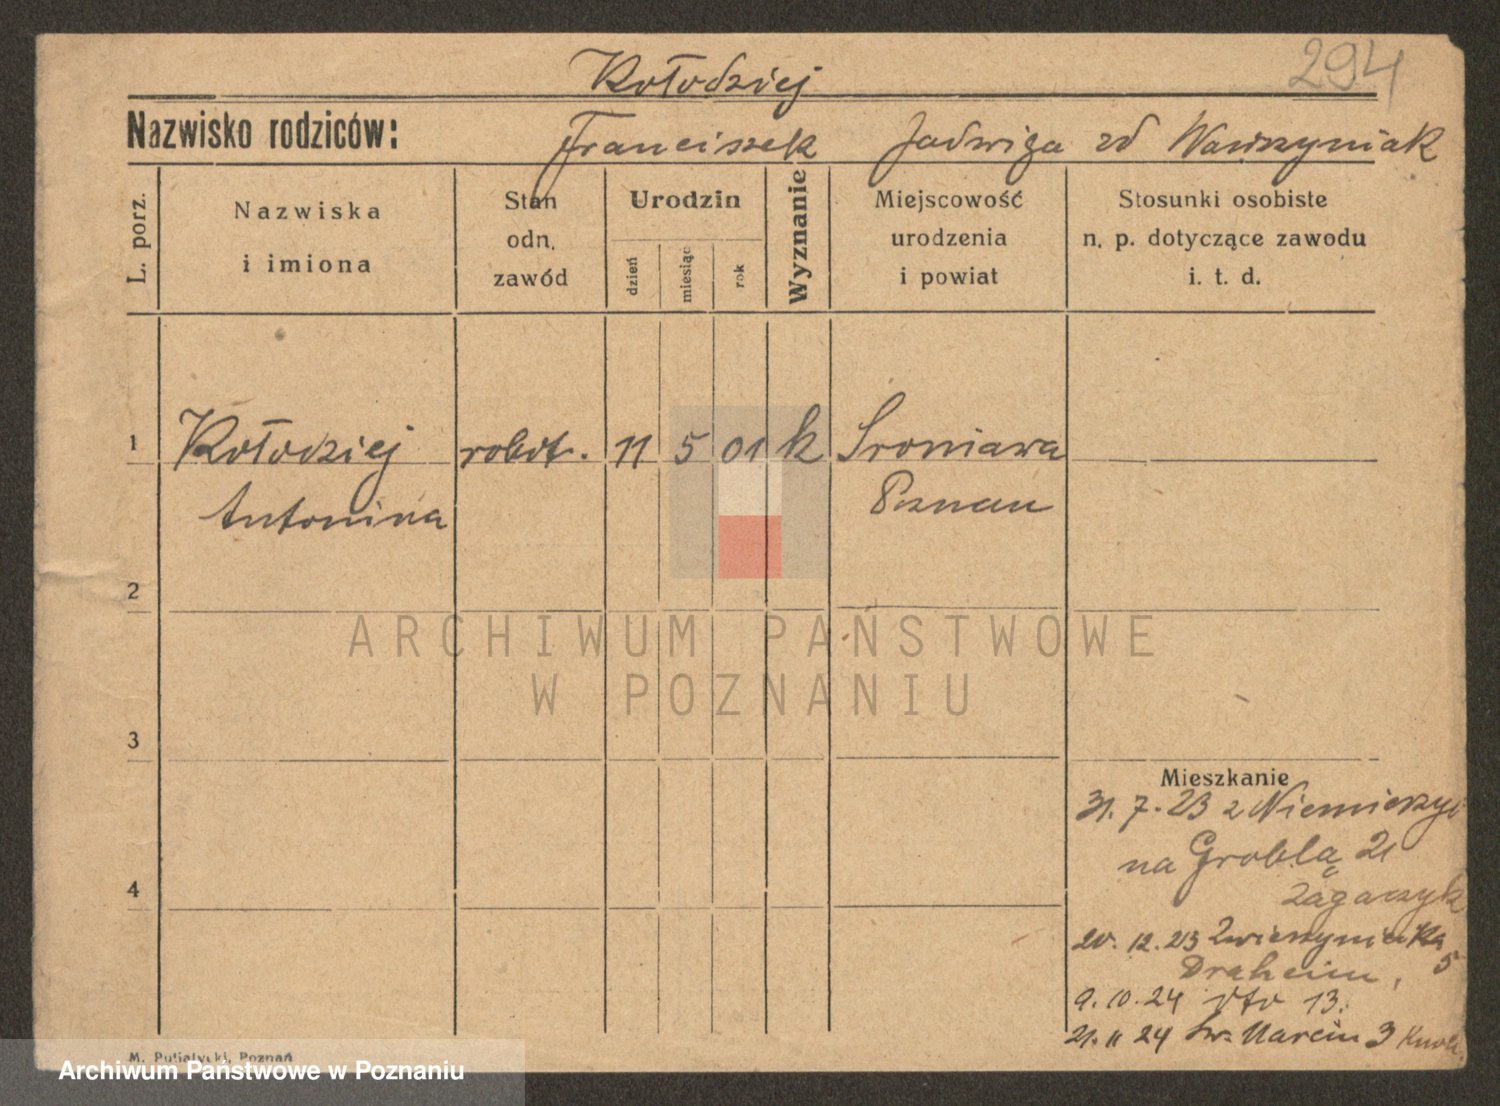 294
Kołodziej
Nazwisko rodziców: Franciszek Jadwiga zd Wawrzyniak
L. porz.
Nazwiska i imiona
Stan odn. zawód
Urodzin
dzień miesiąc rok
Wyznanie
Miejscowość urodzenia i powiat
Stosunki osobiste n. p. dotyczące zawodu i. t. d.
1 Kołodziej robotn. 11 5 01 k Sroniawa
Antonina Poznan
2
3
4
Mieszkanie
31. 7. 23 z
na Groblą 21
20. 12. 23 Zwierzyniecka 5
Draheim,
9. 10. 24 dto 13.
21. 11 24 Św. Marcin 3
M. Putiatycki, Poznań
ARCHIWUM PAŃSTWOWE
W POZNANIU
Archiwum Państwowe w Poznaniu